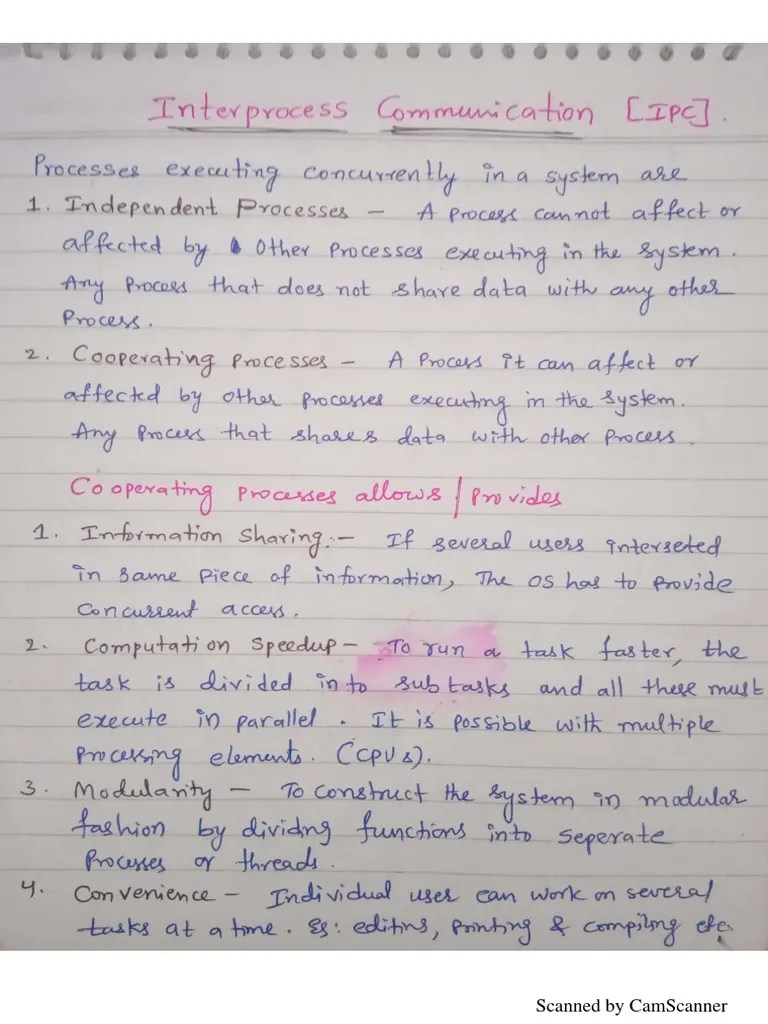 Interprocess Communication [IPC].
Processes executing concurrently in a system are
1. Independent Processes - A process cannot affect or
affected by other processes executing in the system.
Any process that does not share data with any other
process.
2. Cooperating processes - A process it can affect or
affected by other processes executing in the system.
Any process that shares data with other process.
Cooperating processes allows / provides
1. Information sharing:- If several users interseted
in same piece of information, The OS has to provide
concurrent access.
2. Computation speedup - To run a task faster, the
task is divided into subtasks and all these must
execute in parallel. It is possible with multiple
processing elements. (CPUs).
3. Modularity - To construct the system in modular
fashion by dividng functions into seperate
processes or threads.
4. Convenience - Individual user can work on several
tasks at a time. Eg: editing, printing & compiling etc.
Scanned by CamScanner